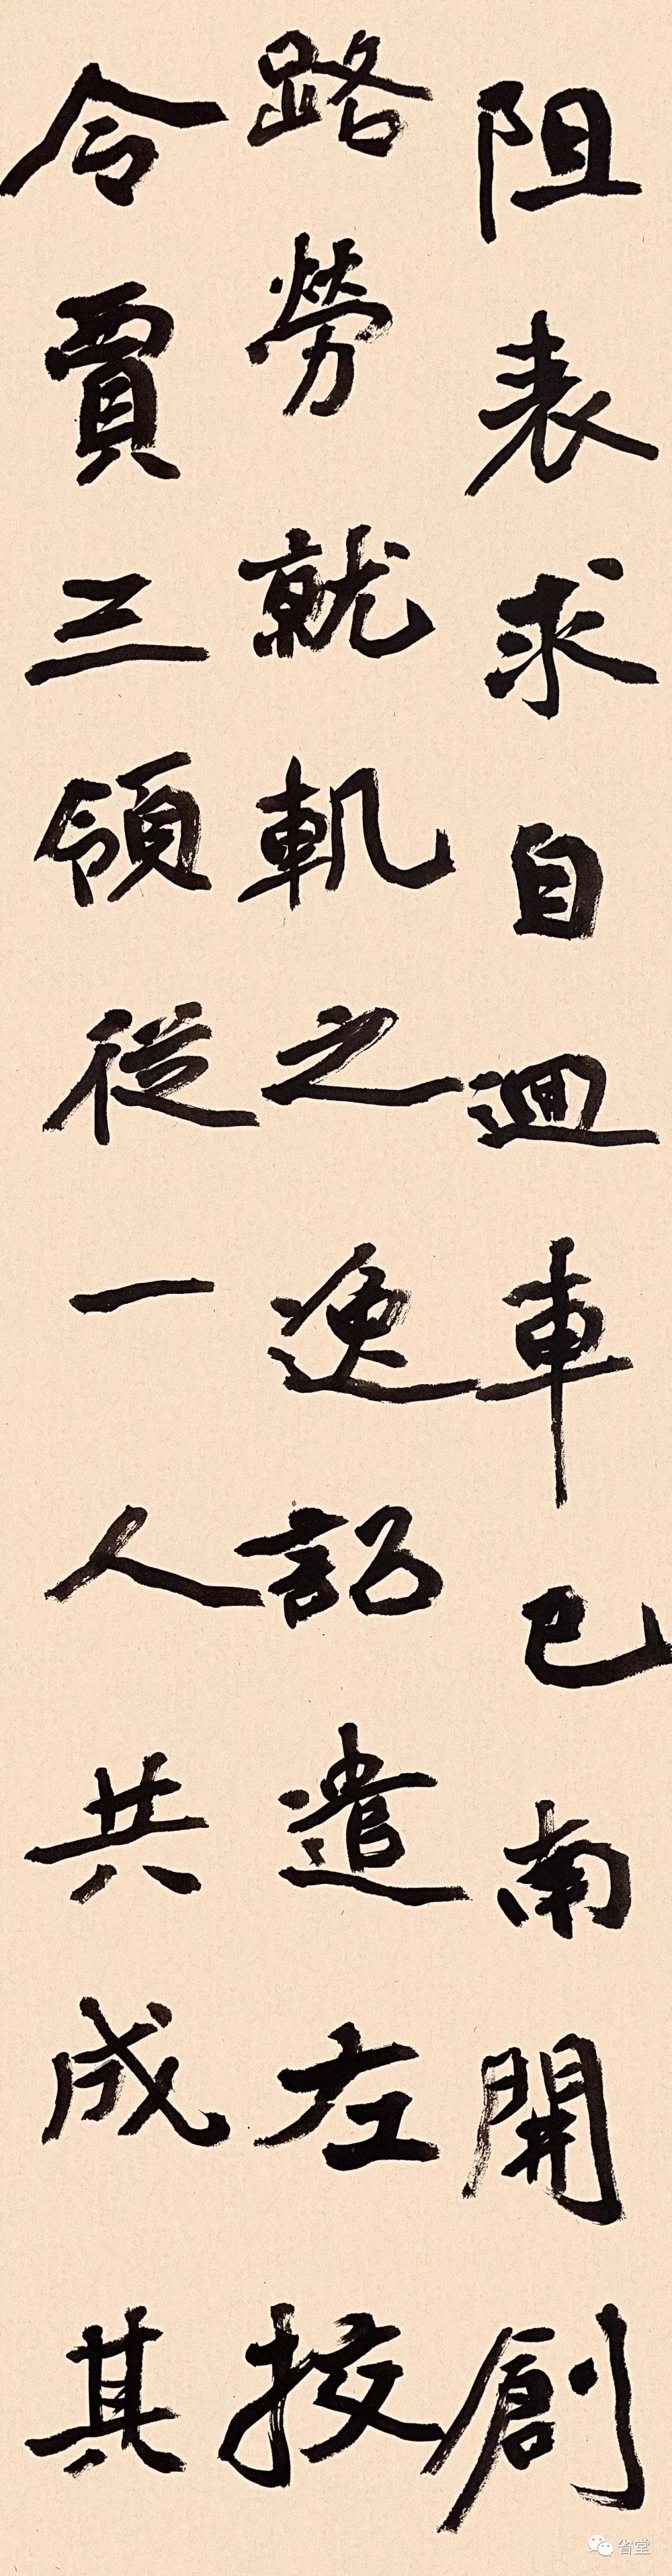 阻表求自迴車已南開創
路勞就軌之逸詔遣左挍
令賈三領從一人共成其
省堂